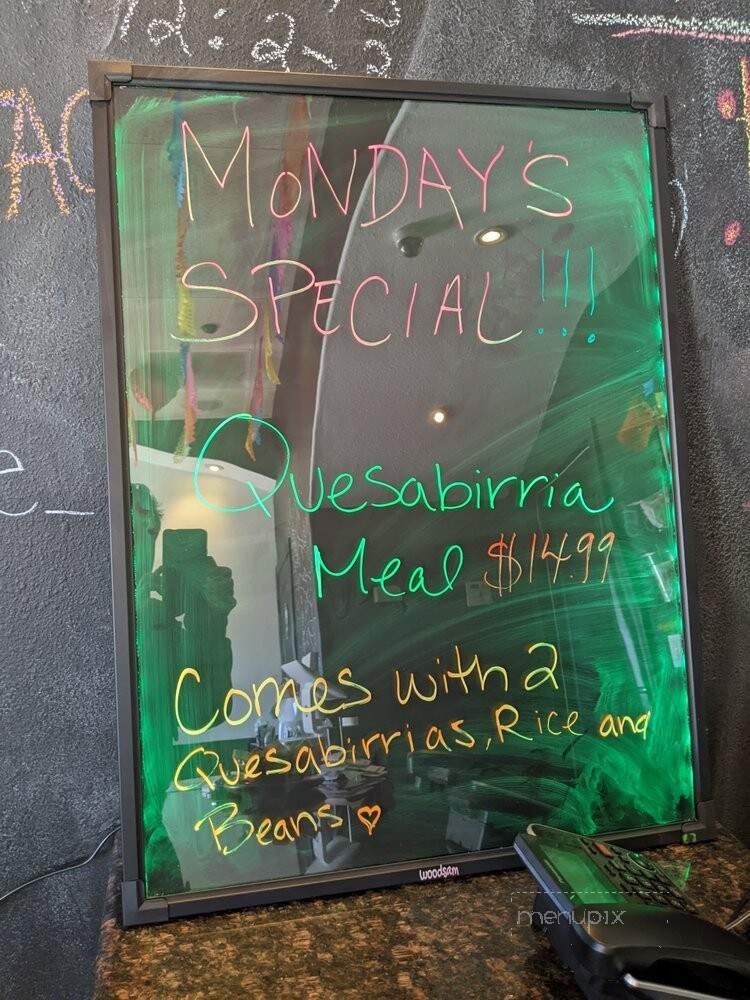 TAC
MONDAY'S
SPECIAL!!!
Quesabirria
Meal $14.99
Comes with 2
Quesabirrias, Rice and
Beans ♡
woodsam
menupix